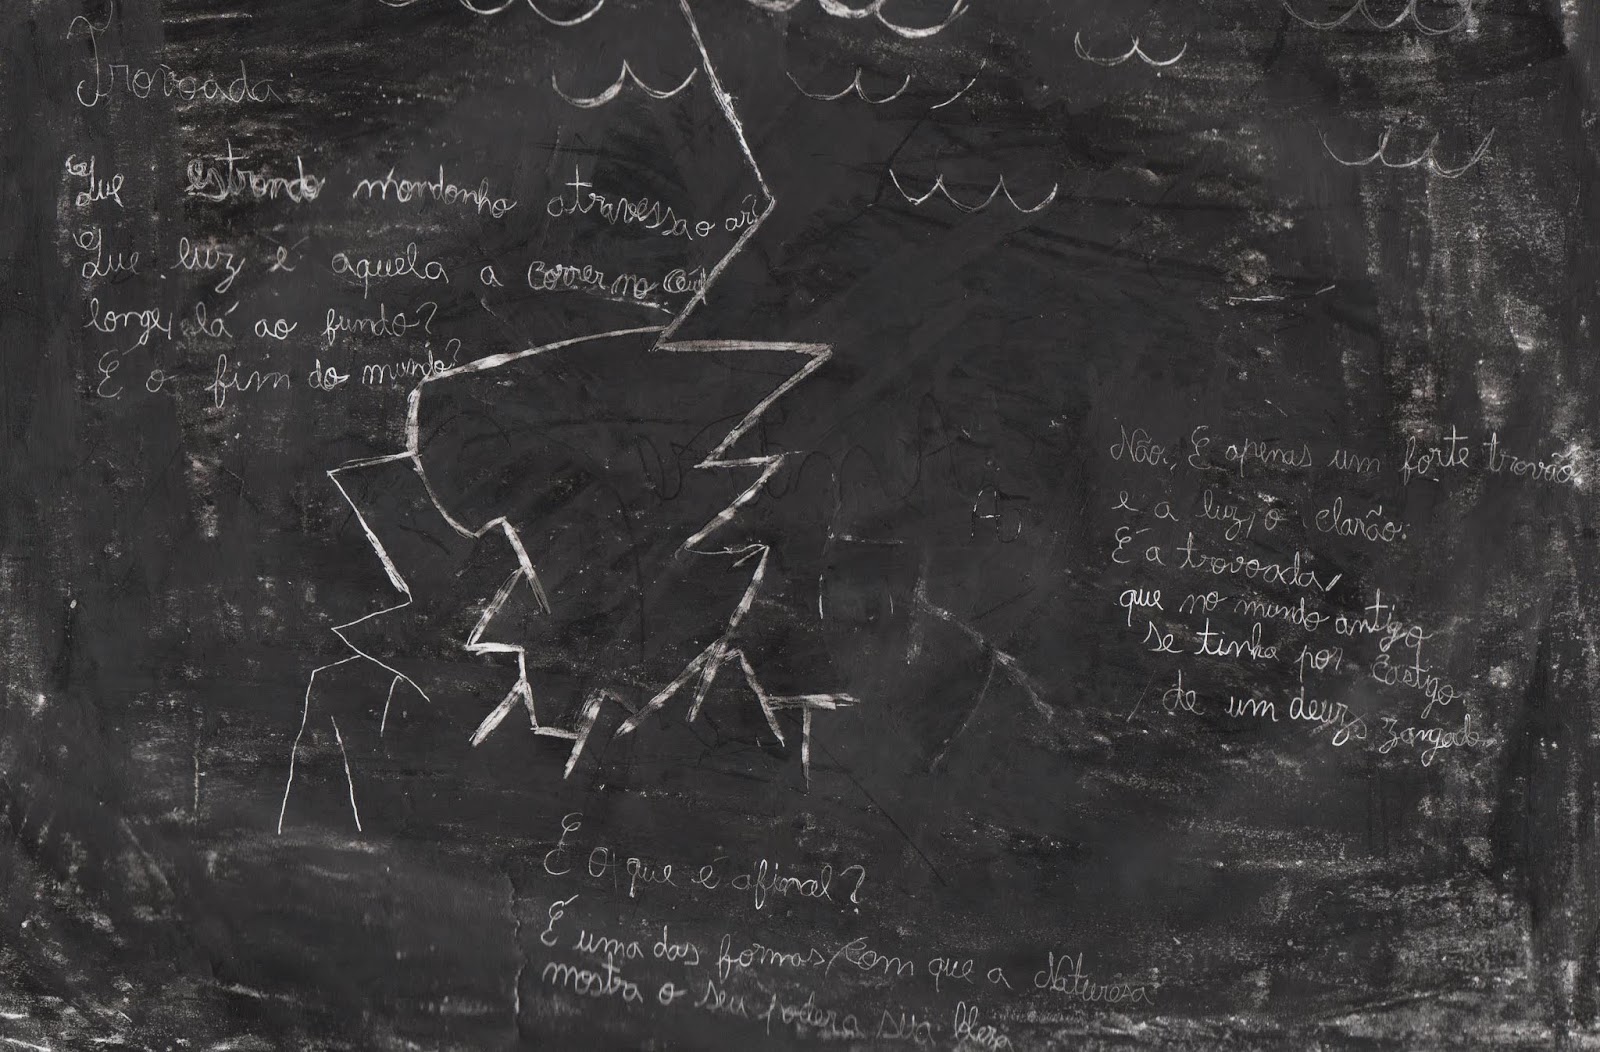 Trovoada
Que estrondo mondonho atravessa o ar?
Que luz é aquela a correr no Céu
longe, lá ao fundo?
É o fim do mundo?
Não, É apenas um forte trovão
e a luz, o clarão.
É a trovoada,
que no mundo antigo
se tinha por Castigo
de um deus zangado
E O que é afinal?
É uma das formas, com que a Naturesa
mostra o seu poder a sua